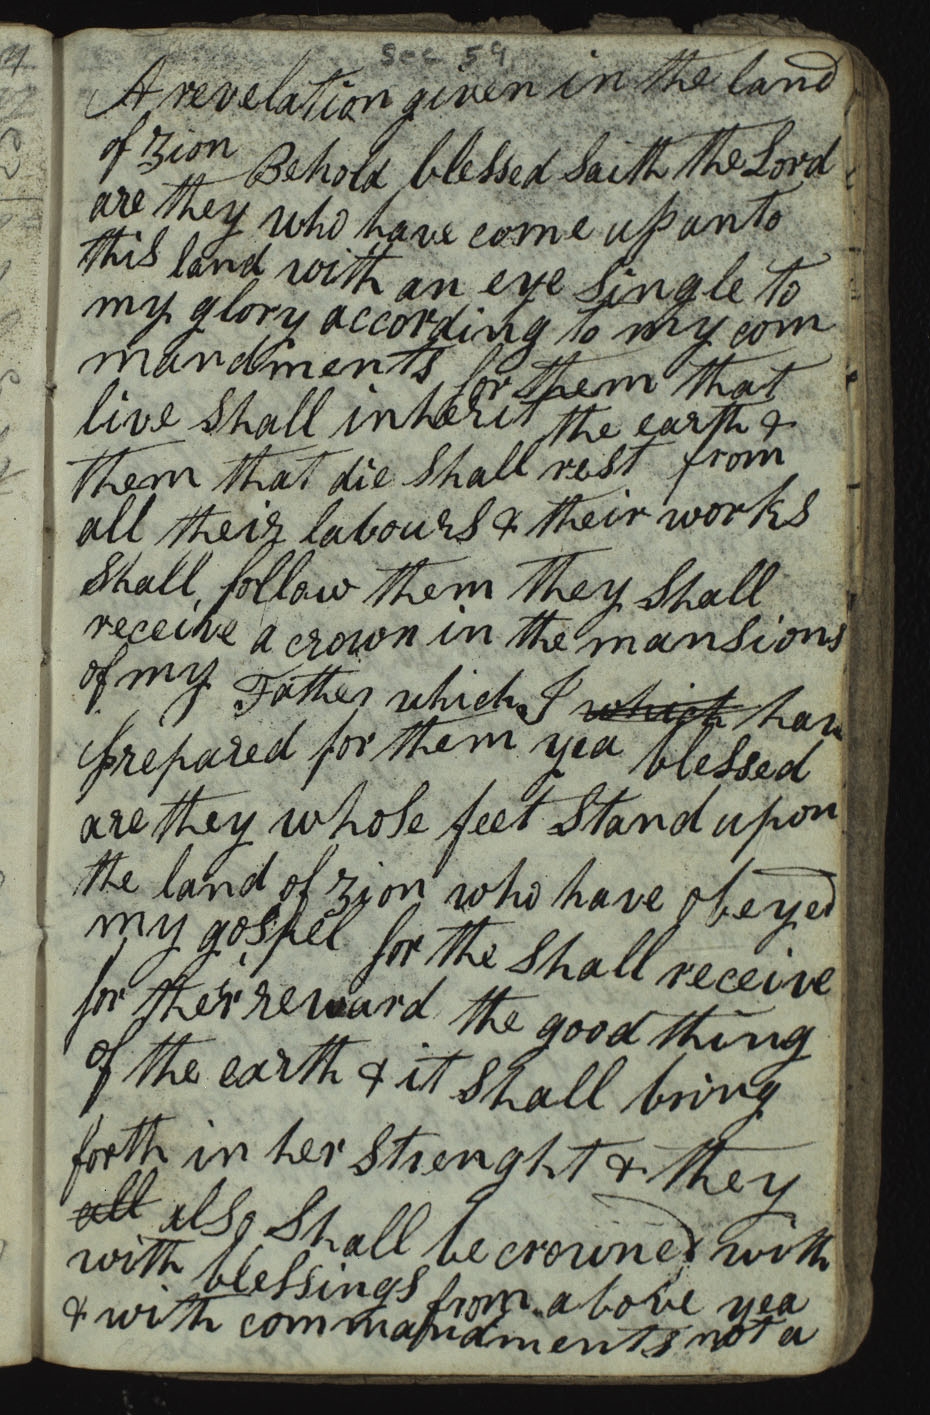 Sec 59
A revelation given in the land
of zion Behold blessed Saith the Lord
are they who have come up unto
this land with an eye Single to
my glory according to my com
mandments for them that
live Shall inherit the earth &
them that die Shall rest from
all their labours & their works
Shall follow them they Shall
receive a crown in the mansions
of my Father which I which have
prepared for them yea blessed
are they whose feet Stand upon
the land of zion who have obeyed
my gospel for the Shall receive
for their reward the good thing
of the earth & it Shall bring
forth in her Strenght & they
all also Shall be crowned with
with blessings from above yea
& with commandments not a